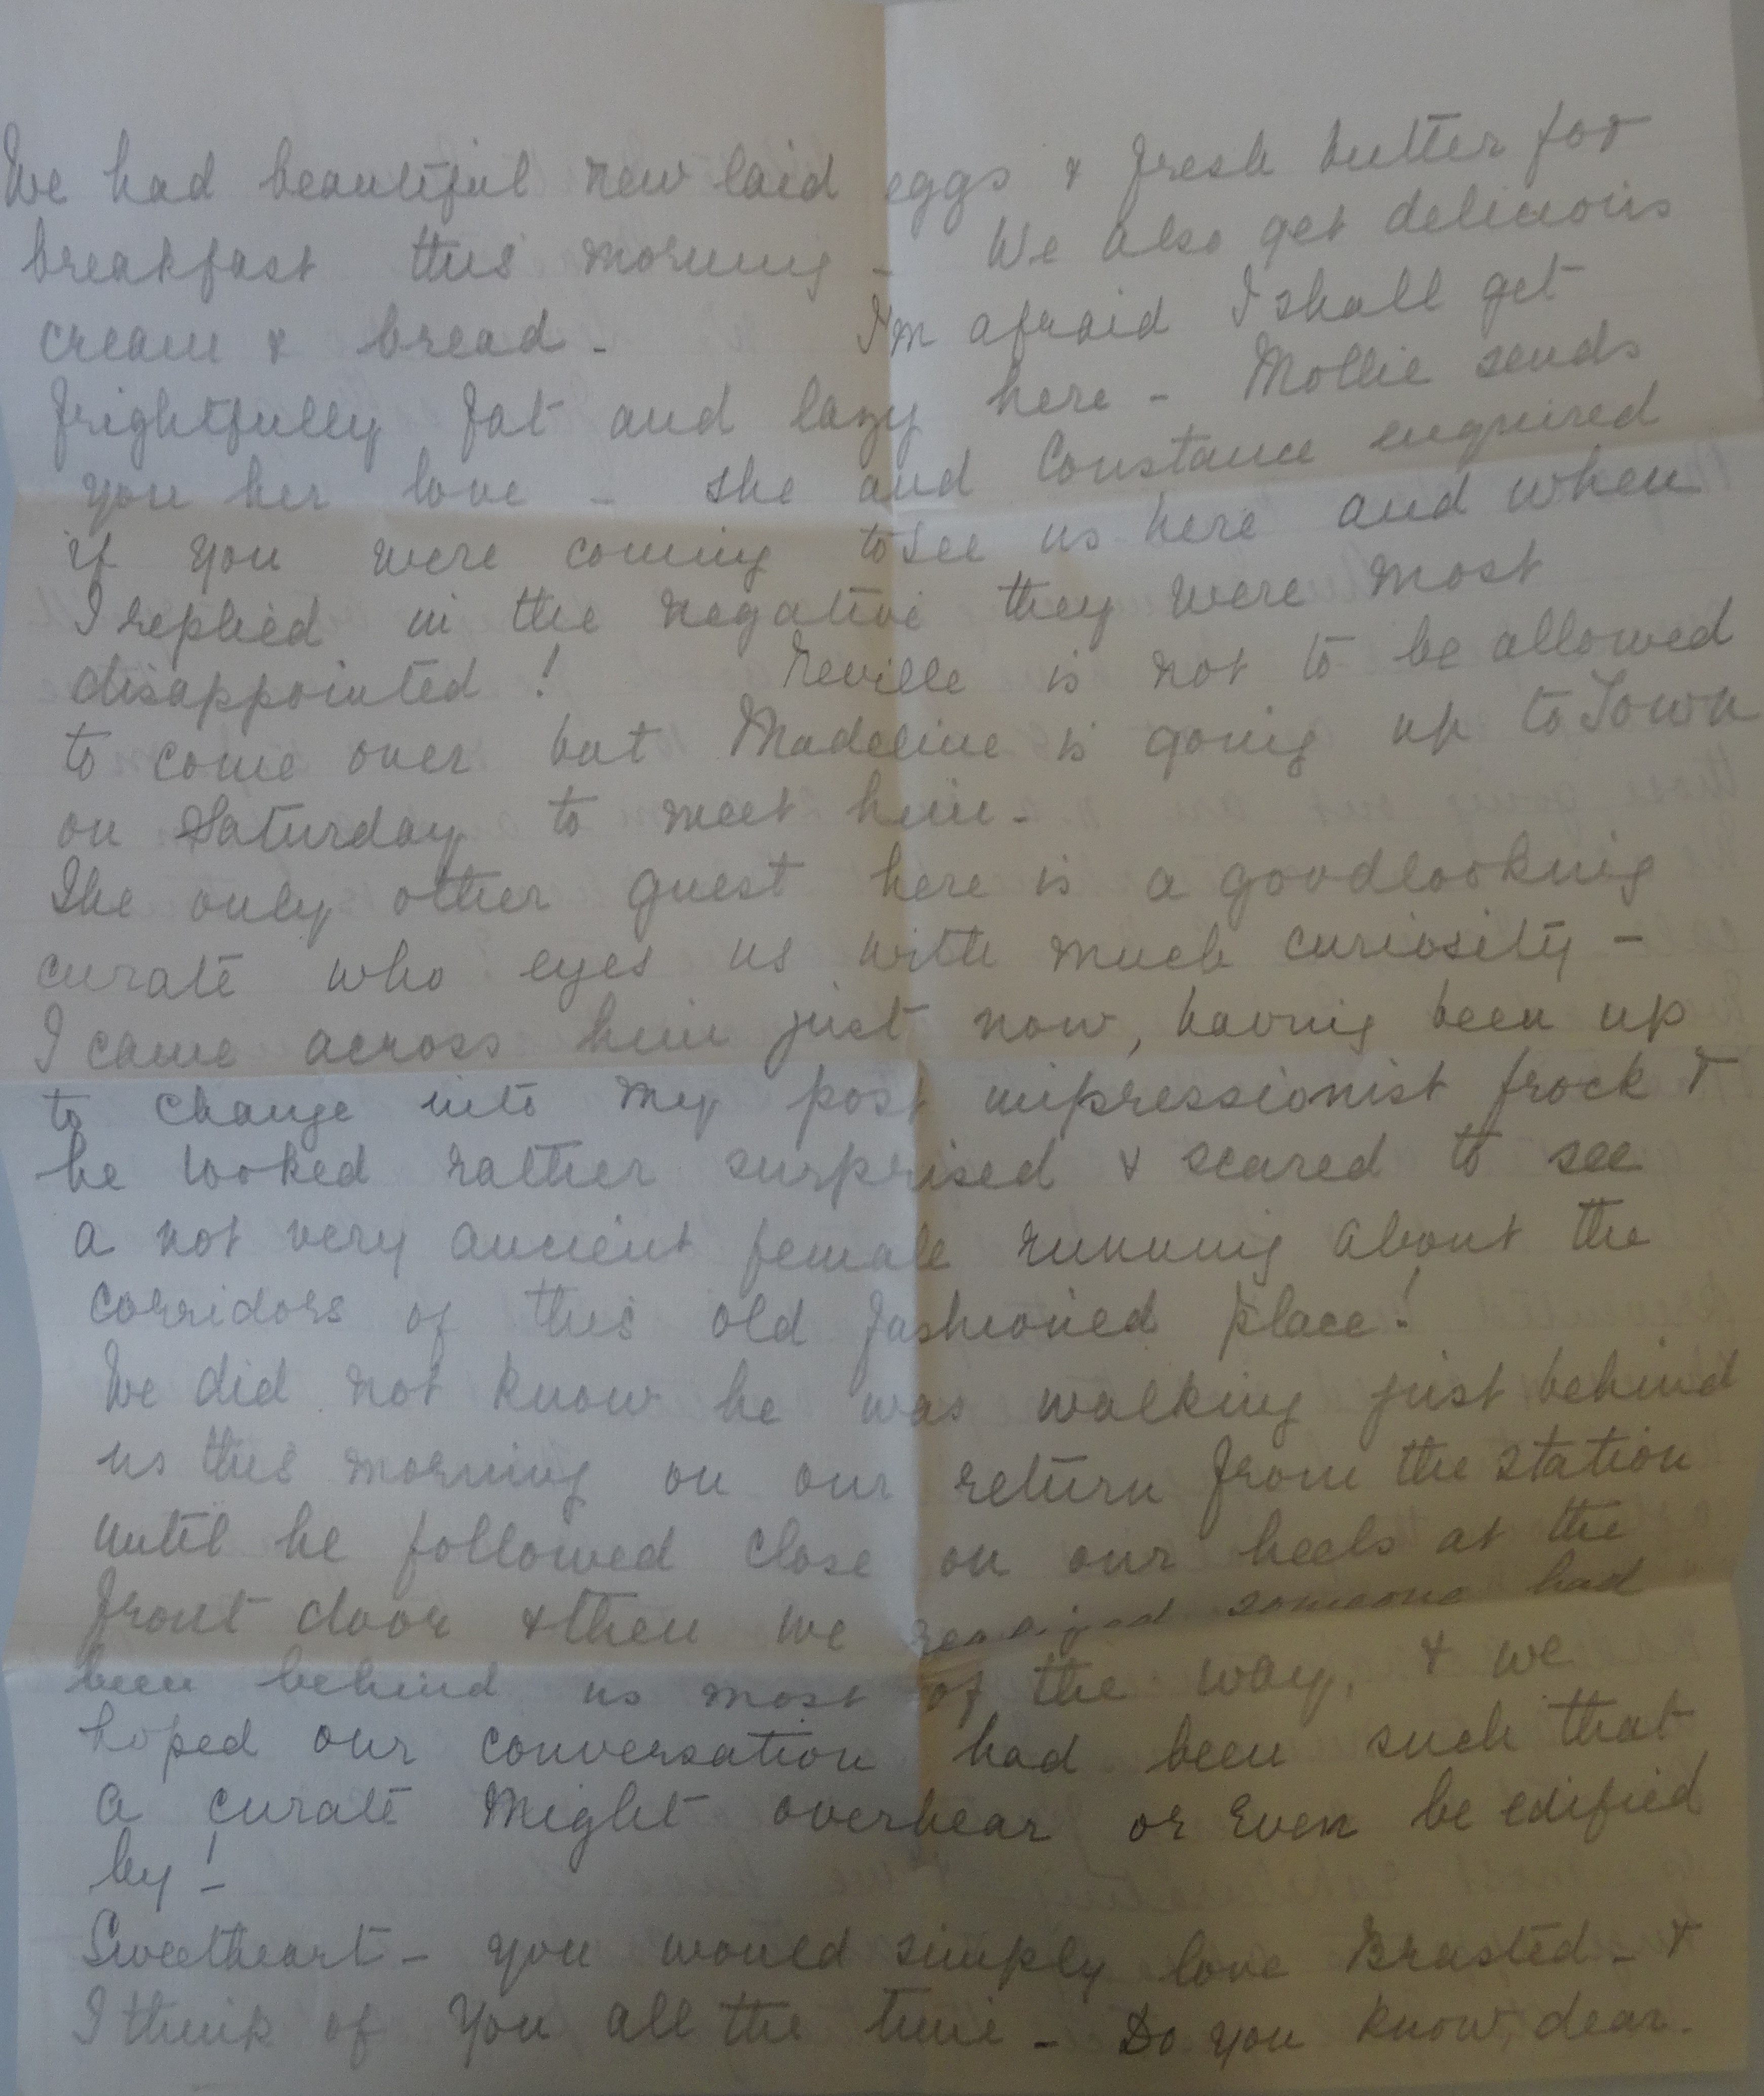 We had beautiful new laid eggs & fresh butter for
breakfast this morning - We also get delicious
cream & bread - I'm afraid I shall get
frightfully fat and lazy here - Mollie sends
you her love - she and Constance enquired
if you were coming to see us here and when
I replied in the negative they were most
disappointed ! Neville is not to be allowed
to come over but Madeline is going up to Town
on Saturday to meet him -
The only other guest here is a goodlooking
curate who eyes us with much curiosity -
I came across him just now, having been up
to change into my post impressionist frock &
he looked rather surprised & scared to see
a not very ancient female running about the
corridors of this old fashioned place !
We did not know he was walking just behind
us this morning on our return from the station
until he followed close on our heels at the
front door & then we realized someone had
been behind us most of the way, & we
hoped our conversation had been such that
a curate might overhear or even be edified
by ! -
Sweetheart - you would simply love Brasted - &
I think of you all the time - Do you know, dear.